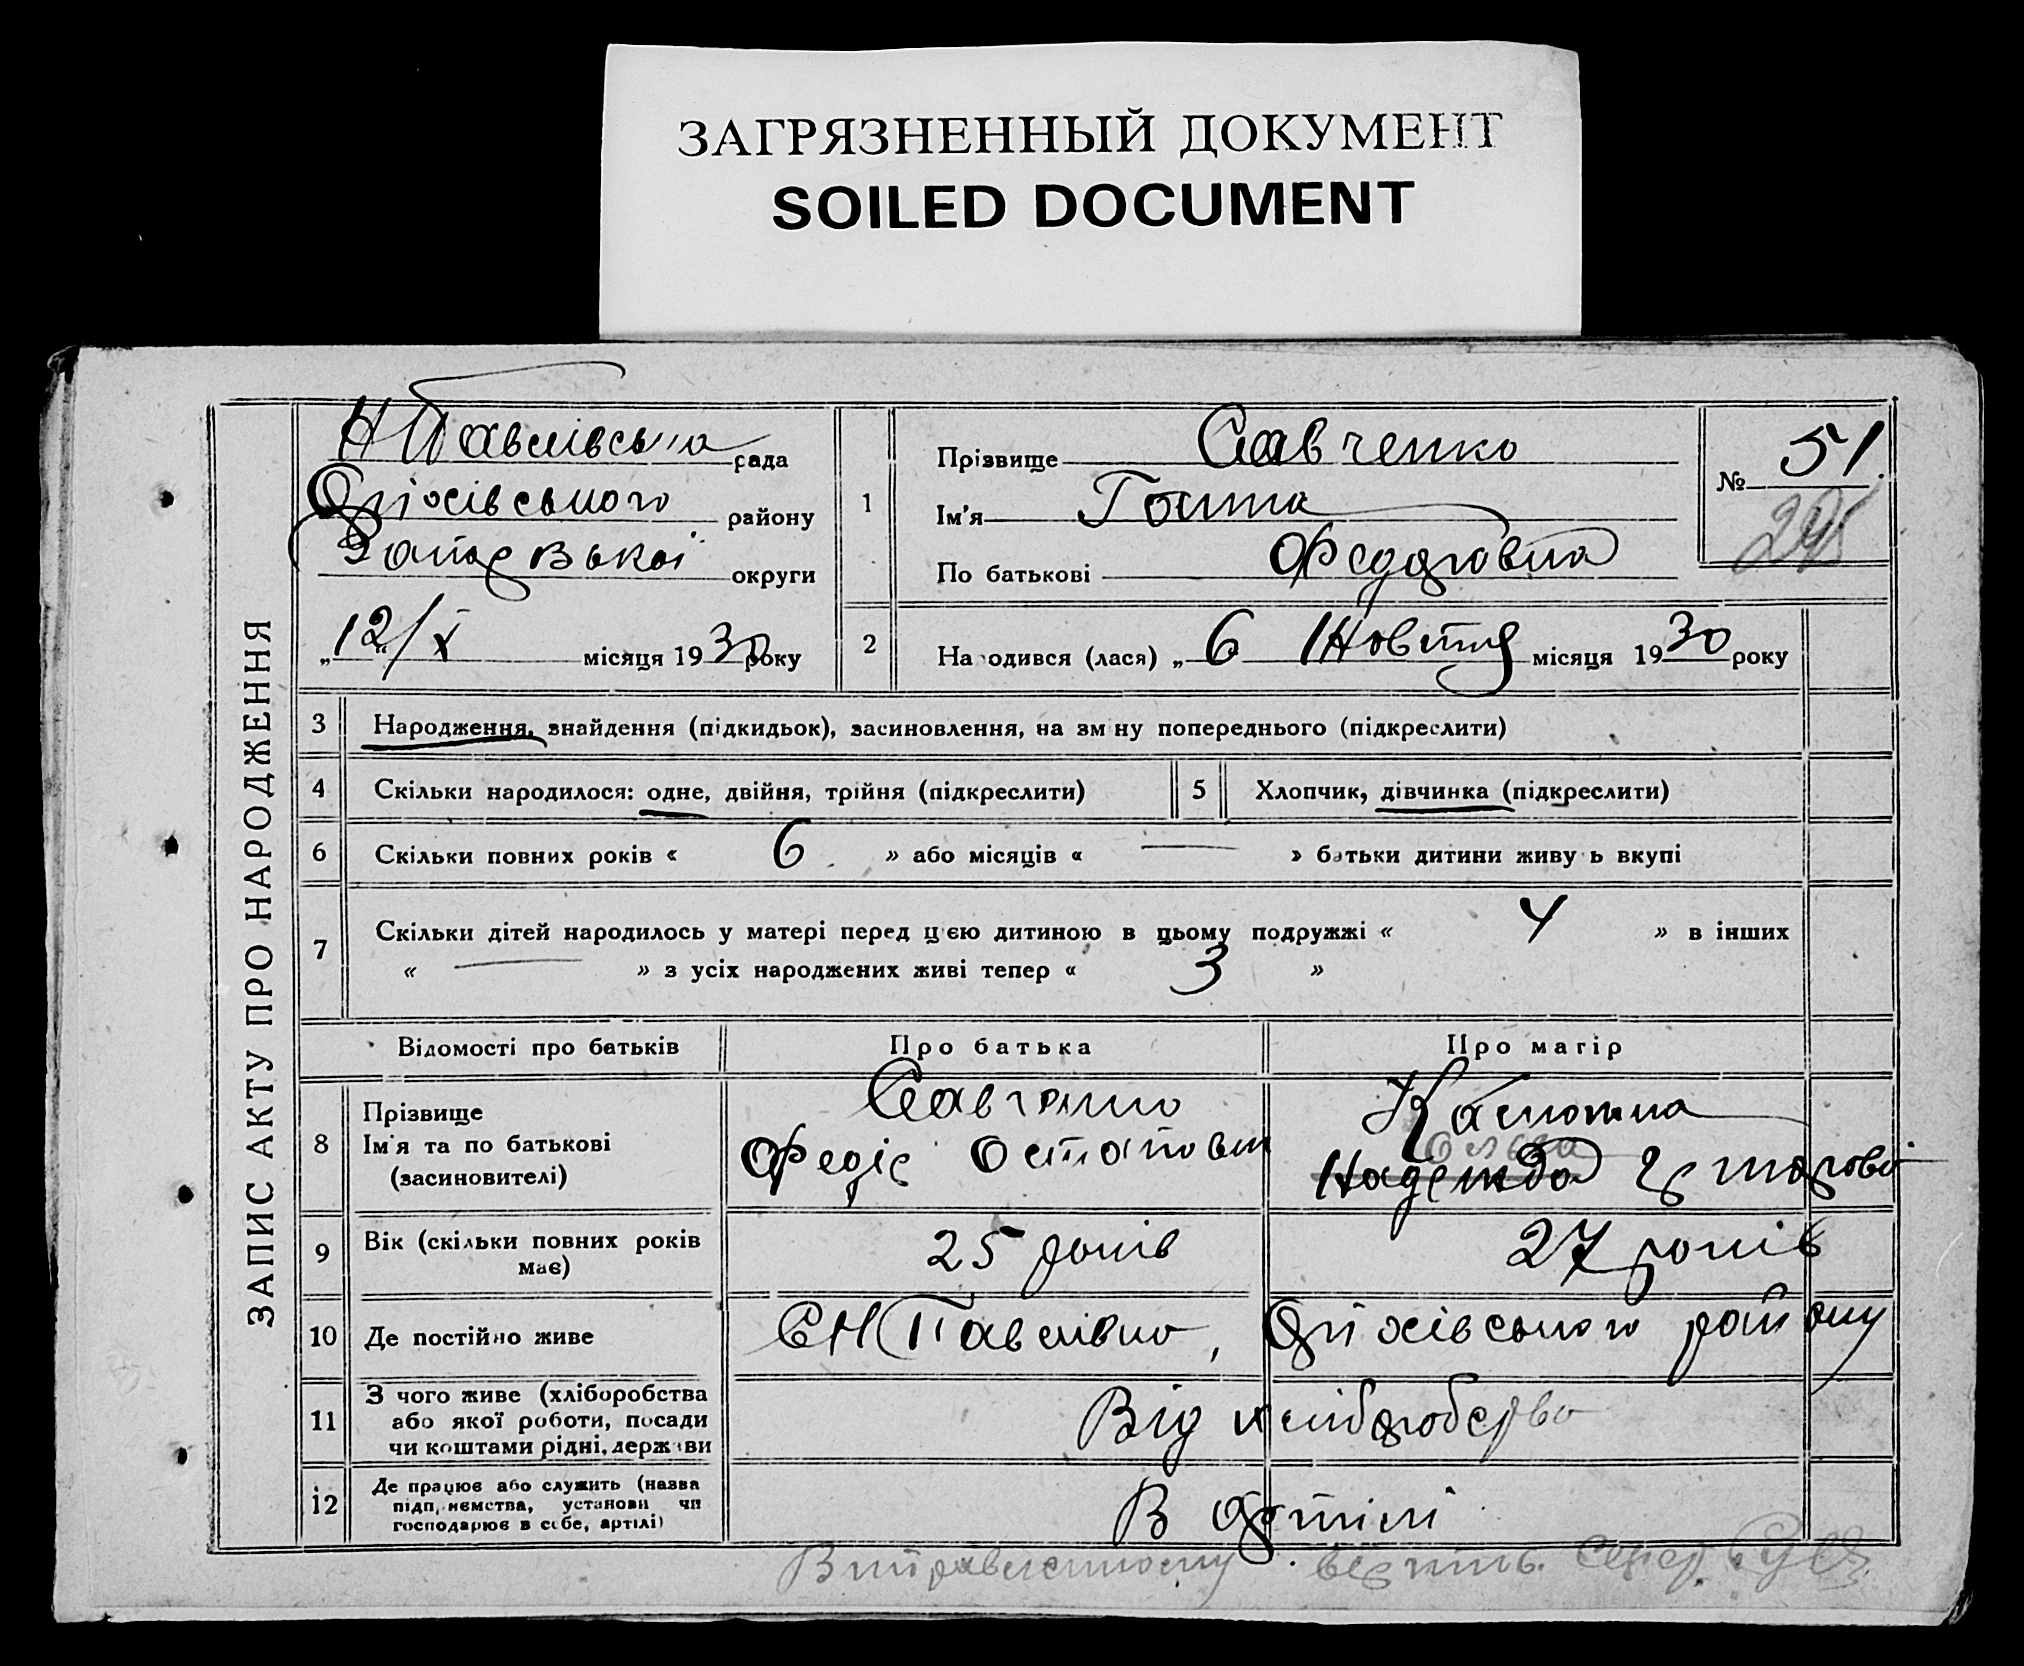 ЗАГРЯЗНЕННЫЙ ДОКУМЕНТ
SOILED DOCUMENT
ЗАПИС АКТУ ПРО НАРОДЖЕННЯ
Н Павлівська рада
Оріхівського району
округи
„12/X місяця 1930 року
1
Прізвище Савченко
Ім'я Ганна
По батькові Федоровна
№ 51.
2
На одився (лася) „ 6 Жовтня місяця 1930 року
3 Народження, знайдення (підкидьок), засиновлення, на зм ну попереднього (підкреслити)
4 Скільки народилося: одне, двійня, трійня (підкреслити)
5 Хлопчик, дівчинка (підкреслити)
6 Скільки повних років « 6 » або місяців « — » батьки дитини живу ь вкупі
7 Скільки дітей народилось у матері перед цією дитиною в цьому подружжі « 4 » в інших
« — » з усіх народжених живі тепер « 3 »
Відомості про батьків Про батька Про матір
8 Прізвище
Ім'я та по батькові
(засиновителі)
Савченко
Федір Остапович
Надежда
9 Вік (скільки повних років
має)
25 років 27 років
10 Де постійно живе С Н Павлівка, Оріхівського району
11 З чого живе (хліборобства
або якої роботи, посади
чи коштами рідні, держави
Від хліборобства
12 Де працює або служить (назва
підприємства, установи чи
господарює в себе, артілі)
В артілі